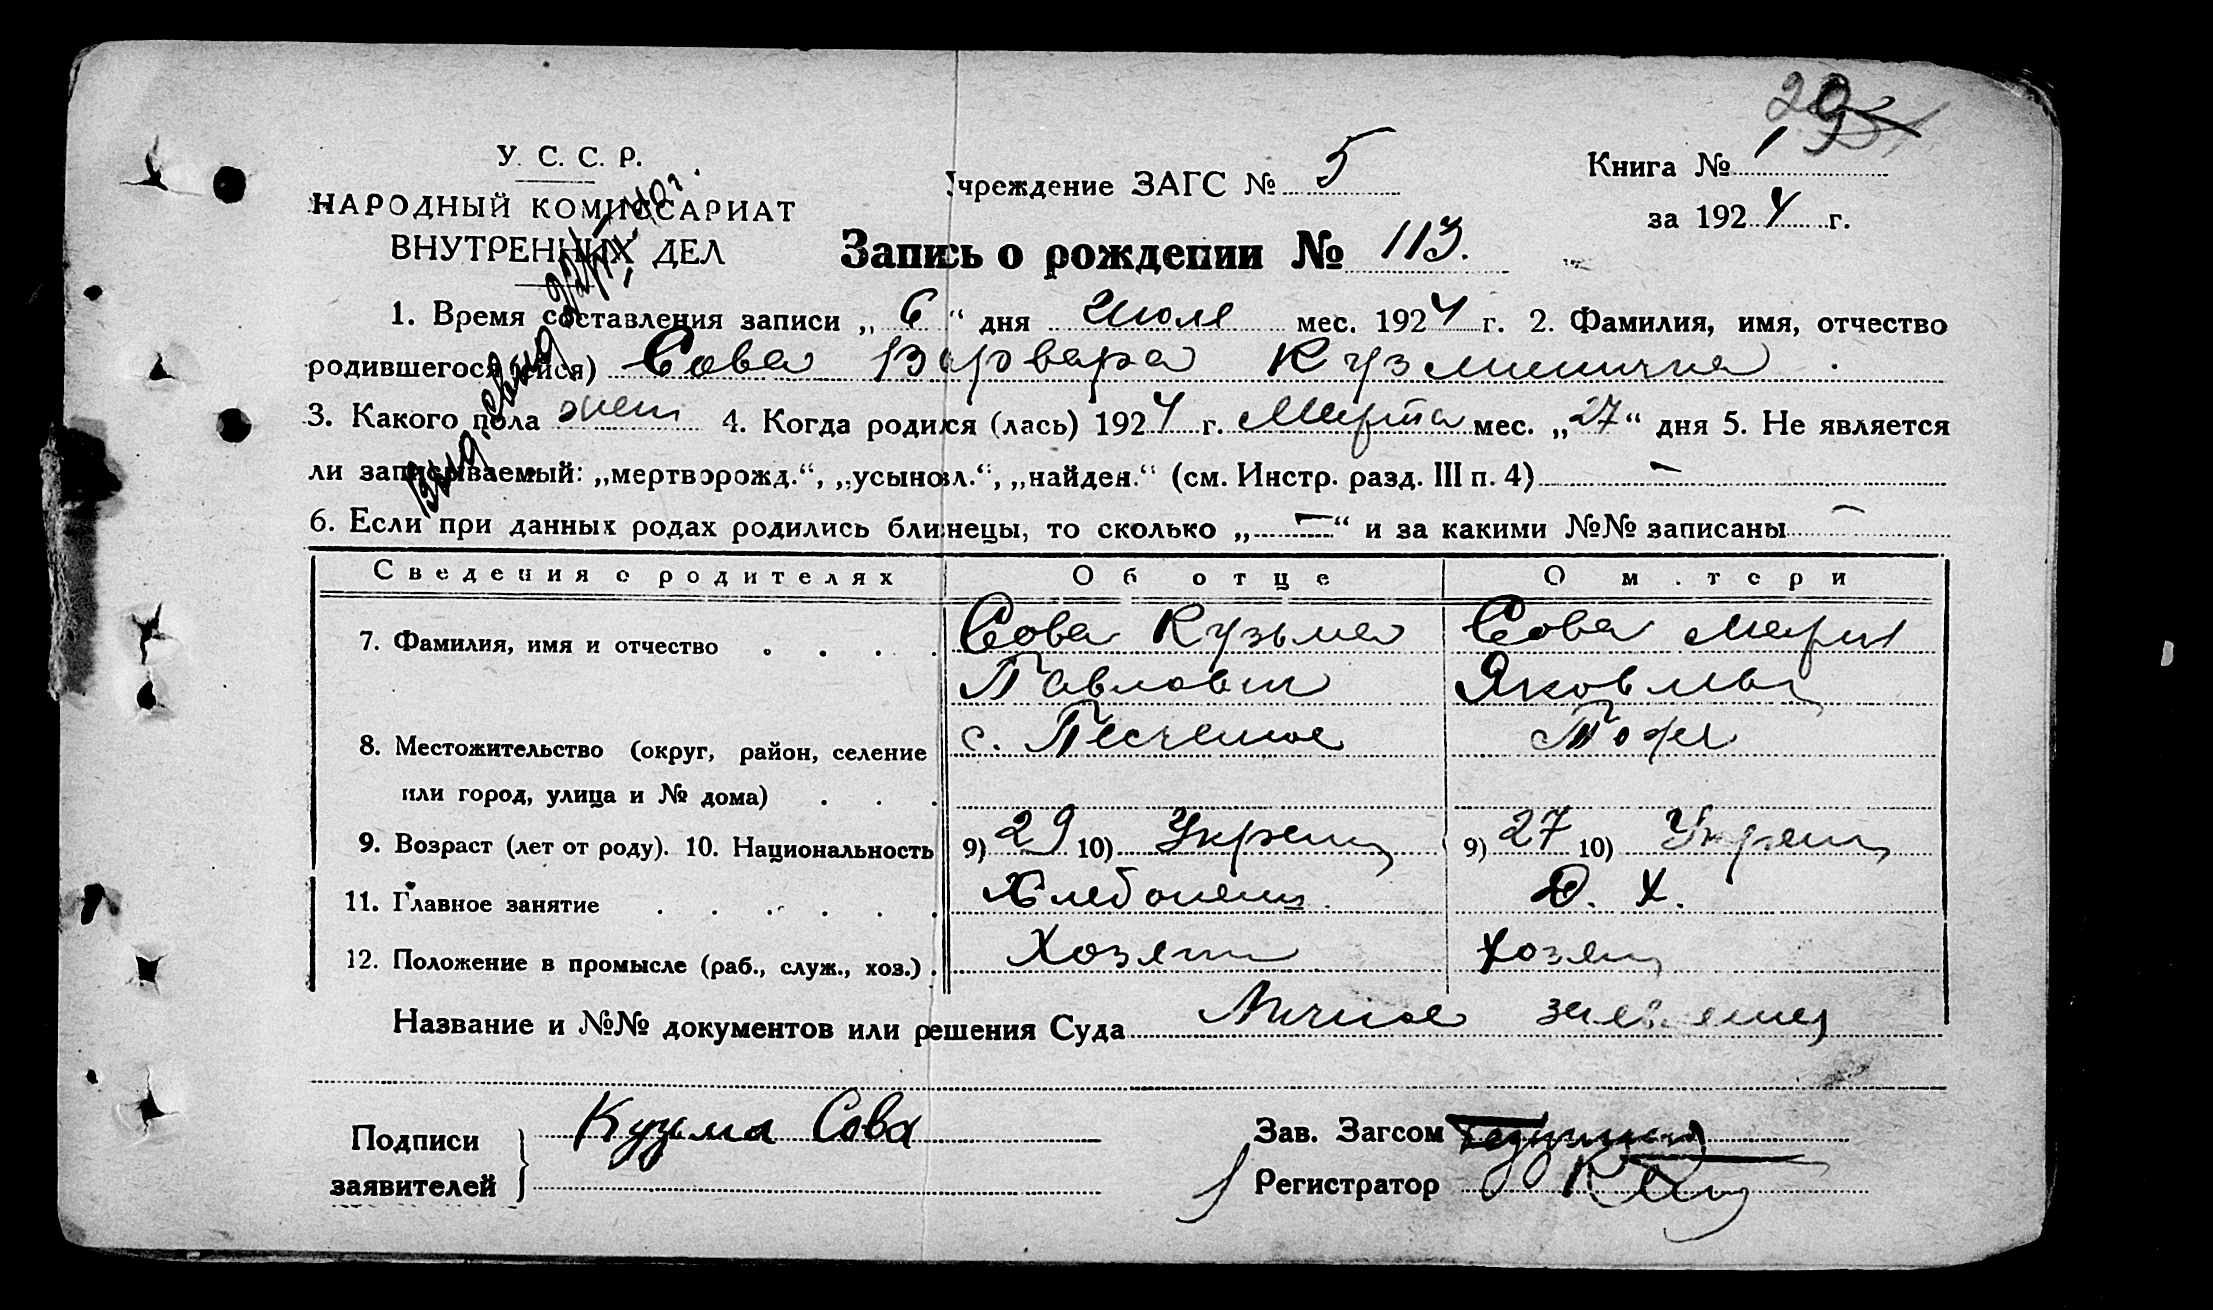 29
У. С. С. Р.
НАРОДНЫЙ КОМИССАРИАТ
ВНУТРЕННИХ ДЕЛ
Учреждение ЗАГС № 5
Книга № 1
за 1924 г.
Запись о рождении № 113.
1. Время составления записи „6“ дня Июля мес. 1924 г. 2. Фамилия, имя, отчество
родившегося (ейся) Сова Варвара Кузминична
3. Какого пола жен 4. Когда родился (лась) 1924 г. Марта мес. „27“ дня 5. Не является
ли записываемый: „мертворожд.“, „усыновл.“, „найден.“ (см. Инстр. разд. III п. 4) –
6. Если при данных родах родились близнецы, то сколько „–“ и за какими №№ записаны –
Сведения о родителях Об отце О матери
7. Фамилия, имя и отчество Сова Кузьма Сова Мария
Павлович Яковлевна
8. Местожительство (округ, район, селение с. Песчаное Тоже
или город, улица и № дома)
9. Возраст (лет от роду). 10. Национальность 9) 29 10) Украинец 9) 27 10) Украинец
11. Главное занятие Хлебопашец Д. Х.
12. Положение в промысле (раб., служ., хоз.) Хозяин Хозяин
Название и №№ документов или решения Суда Личное заявление
Подписи Кузьма Сова Зав. Загсом
заявителей Регистратор